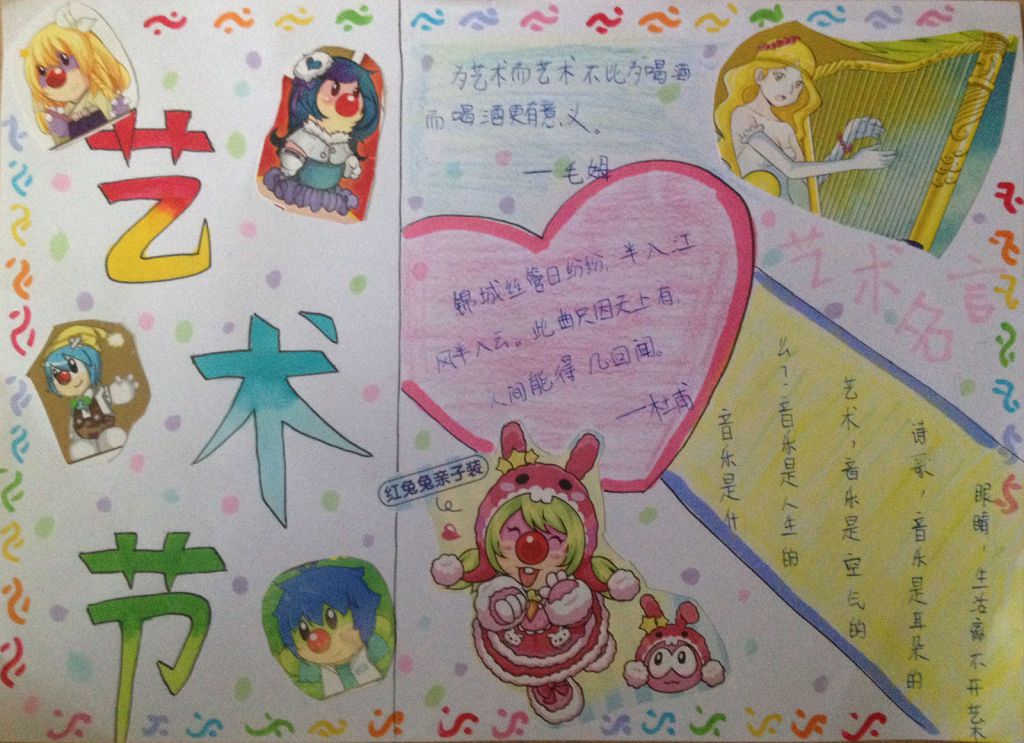 艺
术
节
为艺术而艺术不比为喝酒
而喝酒更有意义。
—毛姆
锦城丝管日纷纷,半入江
风半入云。此曲只因天上有,
人间能得几回闻。
—杜甫
艺术名言
音乐是什
么?音乐是人生的
艺术,音乐是空气的
诗歌,音乐是耳朵的
眼睛,生活离不开艺术
红兔兔亲子装